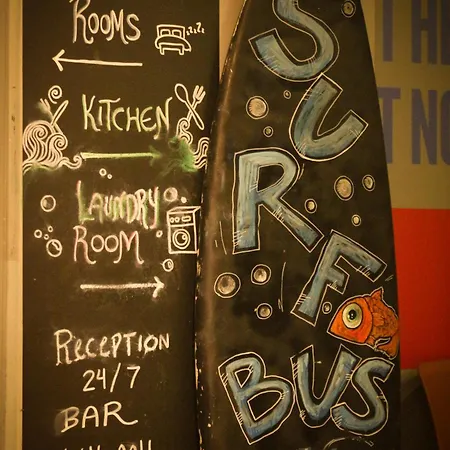 ROOMS
zzz
KITCHEN
LAUNDRY
ROOM
RECEPTION
24/7
BAR
SURF
BUS